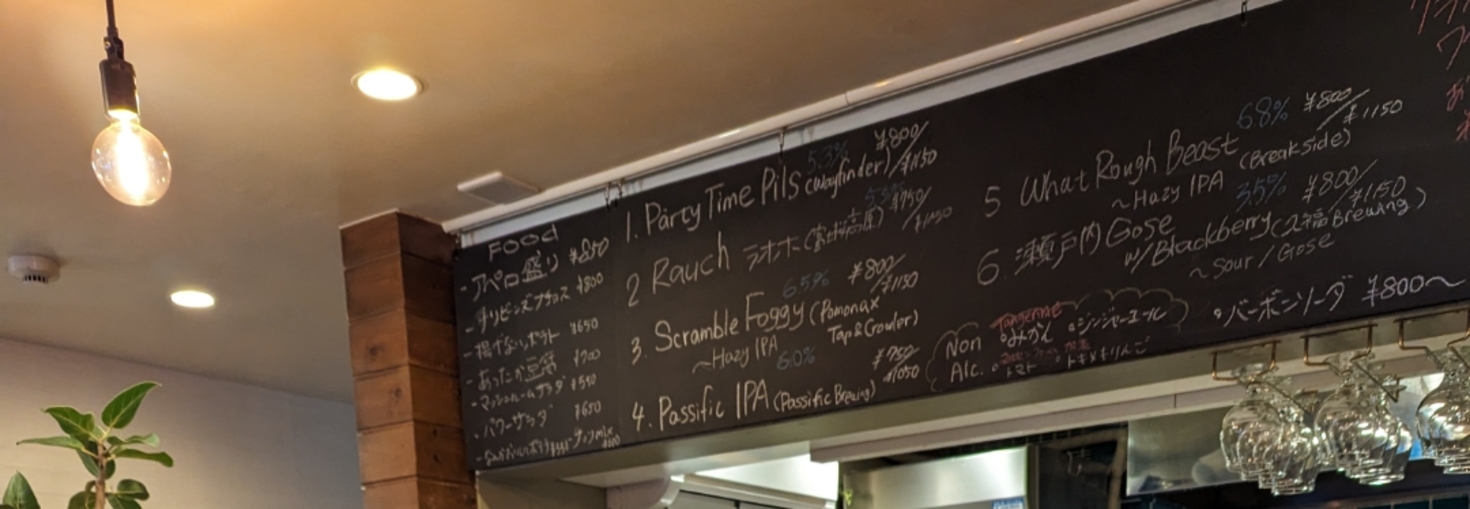 FOOD
-アペロ盛り ¥850
-チリビーンズナチョス ¥800
-揚げないポテト ¥650
-あったか豆腐 ¥700
-マッシュルームサラダ ¥550
-パワーサラダ ¥650
1. Party Time Pils 5.3% ¥800/
(Wayfinder) ¥1150
2 Rauch ラオホ 5.5% ¥750/
6.5% ¥800/
3. Scramble Foggy (Pomonax ¥1150
~Hazy IPA Tap & Growler)
6.0% ¥750/
4. Passific IPA (Passific Brewing) ¥1050
5 What Rough Beast 6.8% ¥800/
~Hazy IPA (Breakside) ¥1150
6. 瀬戸内 Gose 3.5% ¥800/
w/Blackberry (久福Brewing) ¥1150
~Sour/Gose
Non Tangerine
Alc. •みかん •ジンジャーエール
•トマト •トキメキりんご
•バーボンソーダ ¥800~